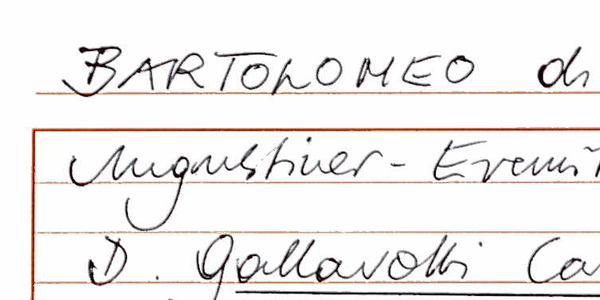 BARTOLOMEO di
Augustiner-Eremit
D. Gallavotti Ca